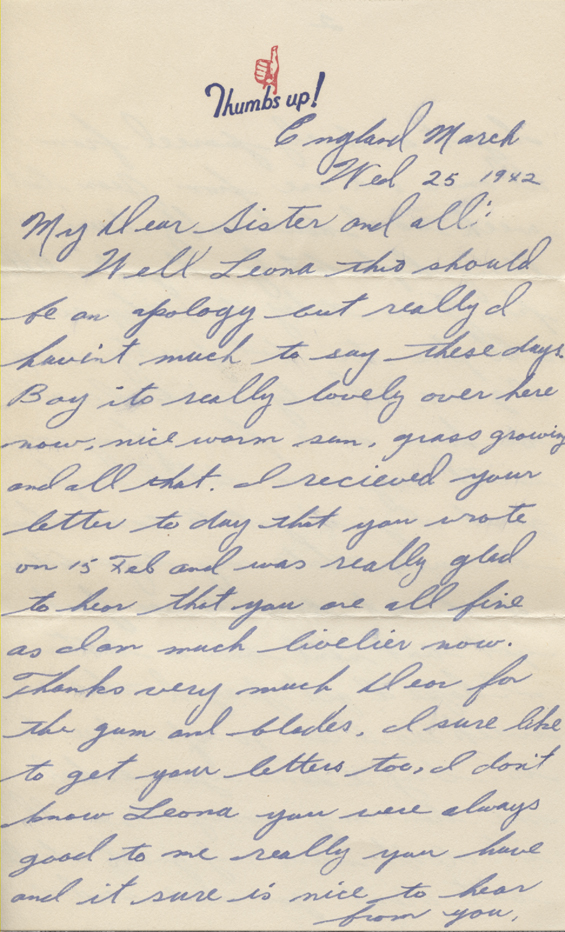 Thumbs up!
England March
Wed 25 1942
My Dear Sister and all:
Well Leona this should
be an apology but really I
havin't much to say these days.
Boy its really lovely over here
now, nice warm sun, grass growing
and all that. I recieved your
letter to day that you wrote
on 15 Feb and was really glad
to hear that you are all fine
as I am much livelier now.
Thanks very much Dear for
the gum and blades, I sure like
to get your letters too, I don't
know Leona you were always
good to me really you have
and it sure is nice to hear
from you,